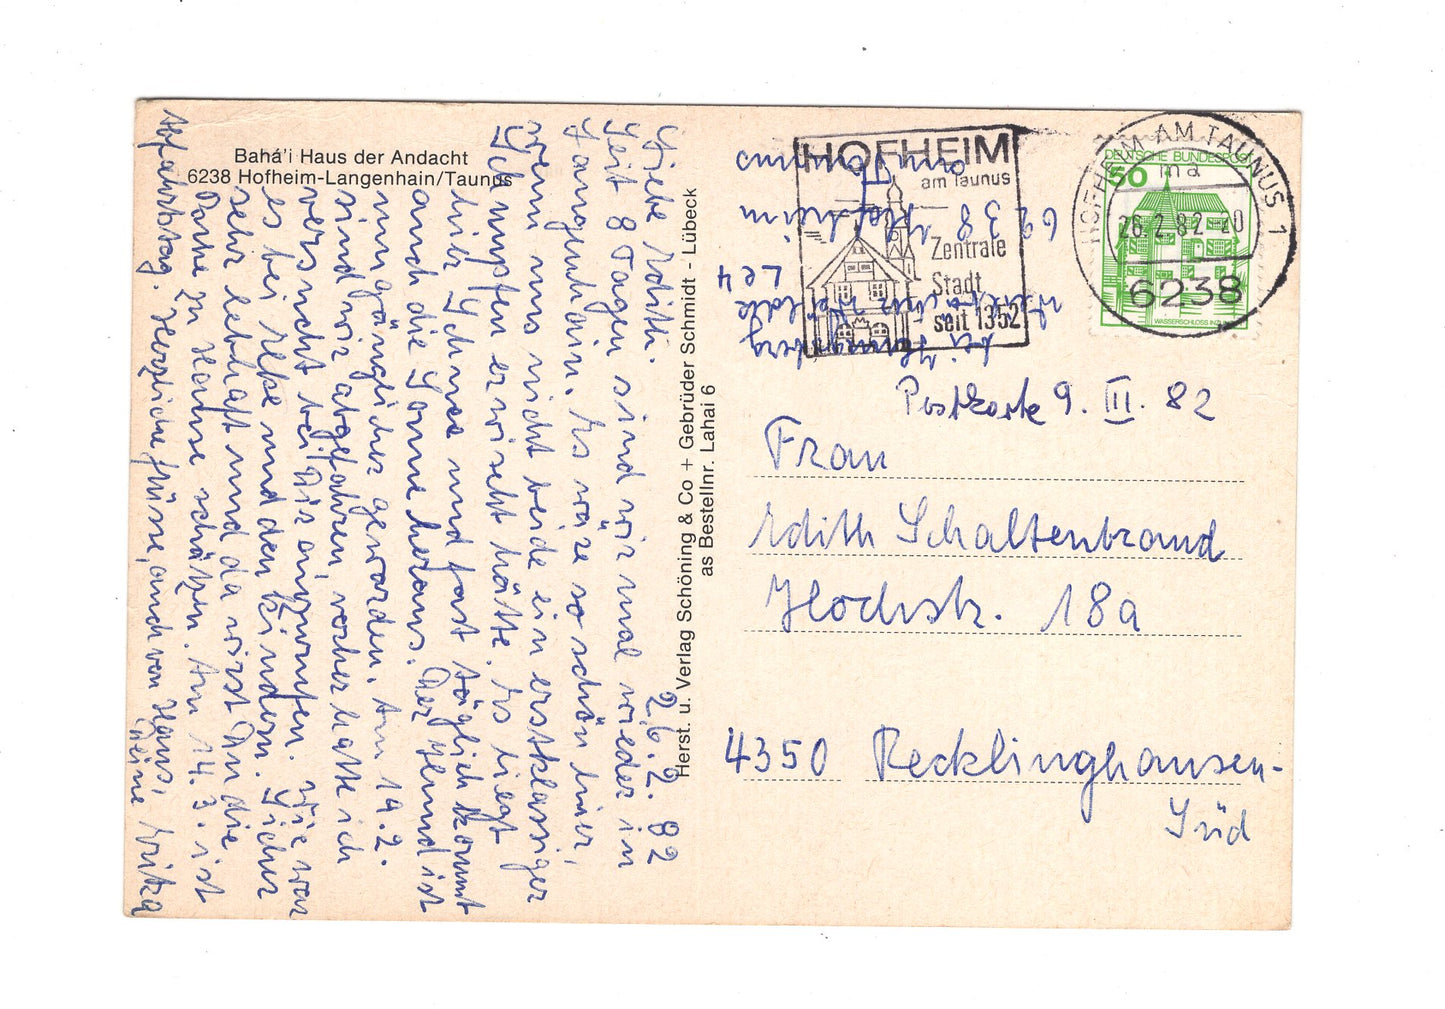 Bahá'i Haus der Andacht
6238 Hofheim-Langenhain/Taunus
26.2.82
Liebe Edith.
Seit 8 Tagen sind wir mal wieder in
Langenhain. Es wäre so schön hier,
wenn uns nicht beide ein erstklassiger
Schnupfen erwischt hätte. Es liegt
hier Schnee und fast täglich kommt
auch die Sonne heraus. Der Hund ist
umgänglicher geworden. Am 19.2.
sind wir abgefahren, vorher hatte ich
versucht bei Dir anzurufen. Wie war
es bei Elke und den Kindern. Sicher
sehr lebhaft und da wirst Du die
Ruhe zu Hause schätzen. Am 14.3. ist
Abfahrtstag. Herzliche Grüsse, auch von Hans,
Deine Erika
Herst. u. Verlag Schöning & Co + Gebrüder Schmidt - Lübeck
as Bestellnr. Lahai 6
HOFHEIM
am Taunus
Zentrale
Stadt
seit 1352
HOFHEIM AM TAUNUS 1
ma
26.2.82-20
6238
DEUTSCHE BUNDESPOST
50
WASSERSCHLOSS INZ
bei
6238 Hofheim
am Taunus
Postkarte 9. III. 82
Frau
Edith Schaltenbrand
Hochstr. 18a
4350 Recklinghausen-
Süd